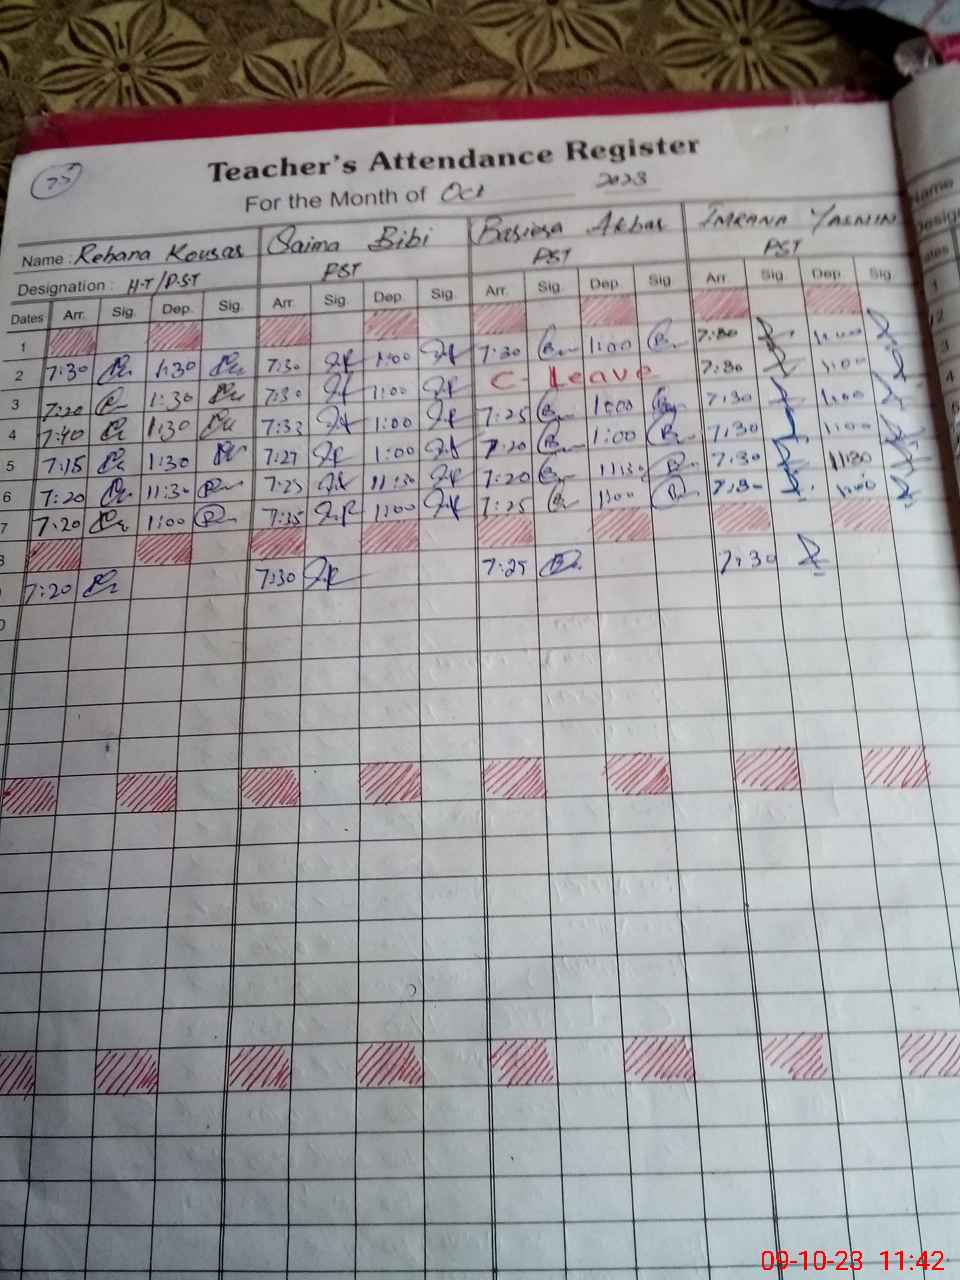 75
Teacher's Attendance Register
For the Month of Oct 2023
Name: Rehana Kousar Saima Bibi Basirsa Akbar IMRANA YASMIN
Designation: H-T/P.S.T PST PST PST
Dates Arr. Sig. Dep. Sig. Arr. Sig. Dep. Sig. Arr. Sig. Dep. Sig Arr. Sig. Dep. Sig.
1
2 7:30 1:30 7:30 1:00 7:30 1:00 7:30 1:00
3 7:20 1:30 7:30 1:00 C- Leave 7:30 1:00
4 7:40 1:30 7:32 1:00 7:25 1:00 7:30 1:00
5 7:15 1:30 7:27 1:00 7:20 1:00 7:30 1:00
6 7:20 11:30 7:25 11:30 7:20 11:30 7:30 11:30
7 7:20 1:00 7:25 1:00 7:25 1:00 7:30 1:00
8
7:20 7:30 7:25 7:30
0
Name
Design
ates
1
2
3
4
09-10-23 11:42